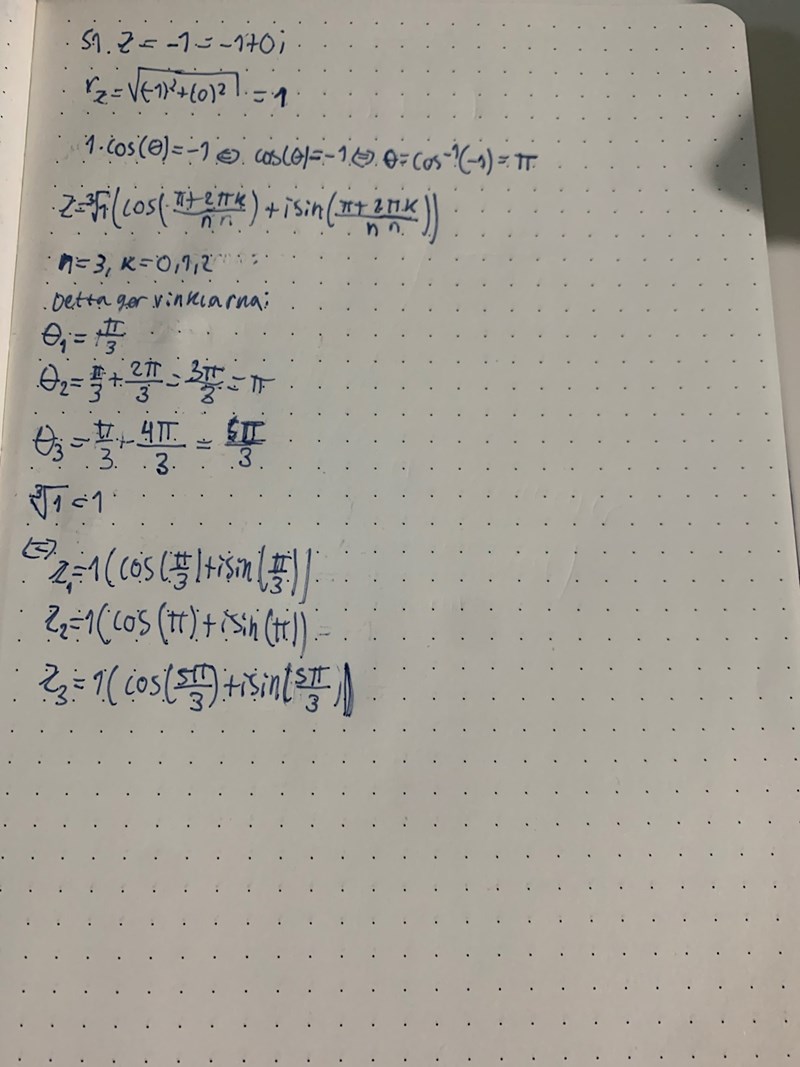 51. z = -1 = -1+0i
r_z = √((-1)²+(0)²) = 1
1·cos(θ)=-1 ⇔ cos(θ)=-1 ⇔ θ=cos⁻¹(-1)=π
z=³√1(cos(π/n+2πk/n)+isin(π/n+2πk/n))
n=3, k=0,1,2
Detta ger vinklarna:
θ₁=+π/3
θ₂=π/3+2π/3=3π/3=π
θ₃=π/3+4π/3=5π/3
³√1=1
⇔
z₁=1(cos(π/3)+isin(π/3))
z₂=1(cos(π)+isin(π))
z₃=1(cos(5π/3)+isin(5π/3))